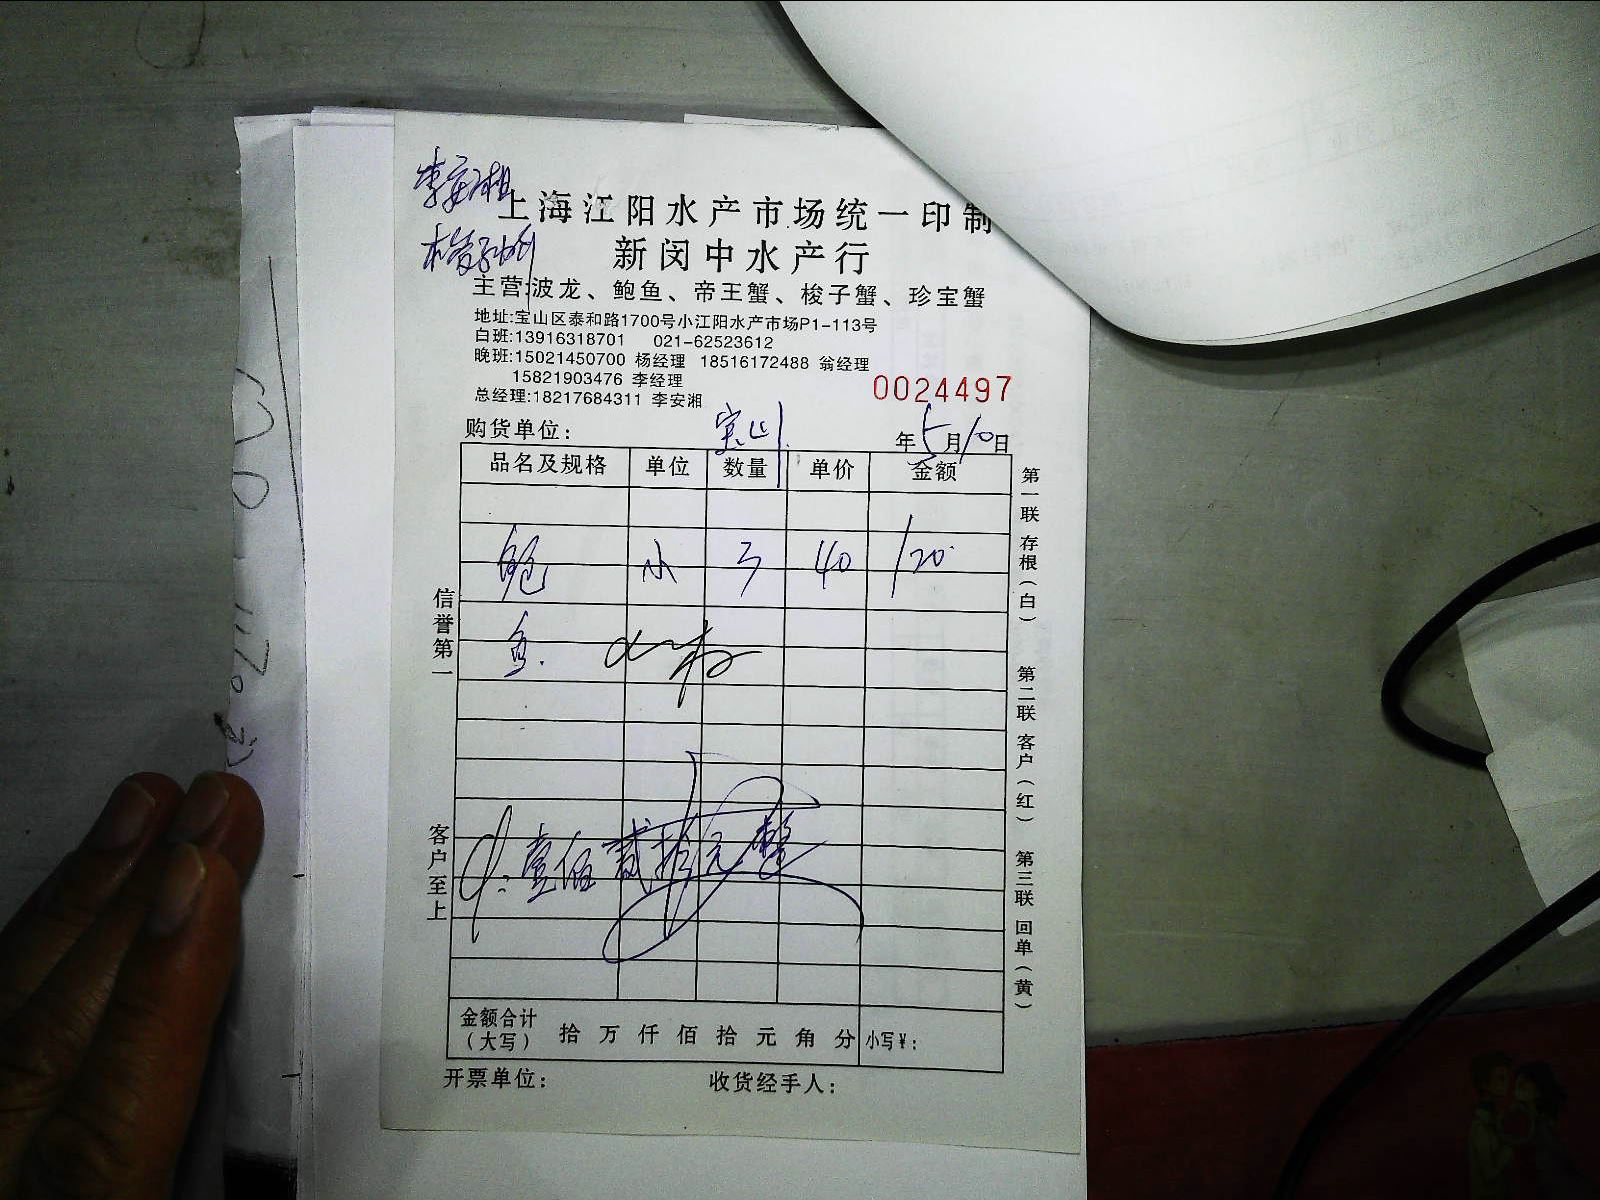 李安湘
上海江阳水产市场统一印制
新闵中水产行
主营:波龙、鲍鱼、帝王蟹、梭子蟹、珍宝蟹
地址:宝山区泰和路1700号小江阳水产市场P1-113号
白班:13916318701 021-62523612
晚班:15021450700 杨经理 18516172488 翁经理
15821903476 李经理
总经理:18217684311 李安湘
0024497
购货单位: 宝山 年5月10日
品名及规格 单位 数量 单价 金额
鲍 小 3 40 120
鱼.
壹佰贰拾元整
金额合计(大写) 拾 万 仟 佰 拾 元 角 分 小写¥:
开票单位: 收货经手人:
信誉第一
客户至上
第一联 存根(白)
第二联 客户(红)
第三联 回单(黄)